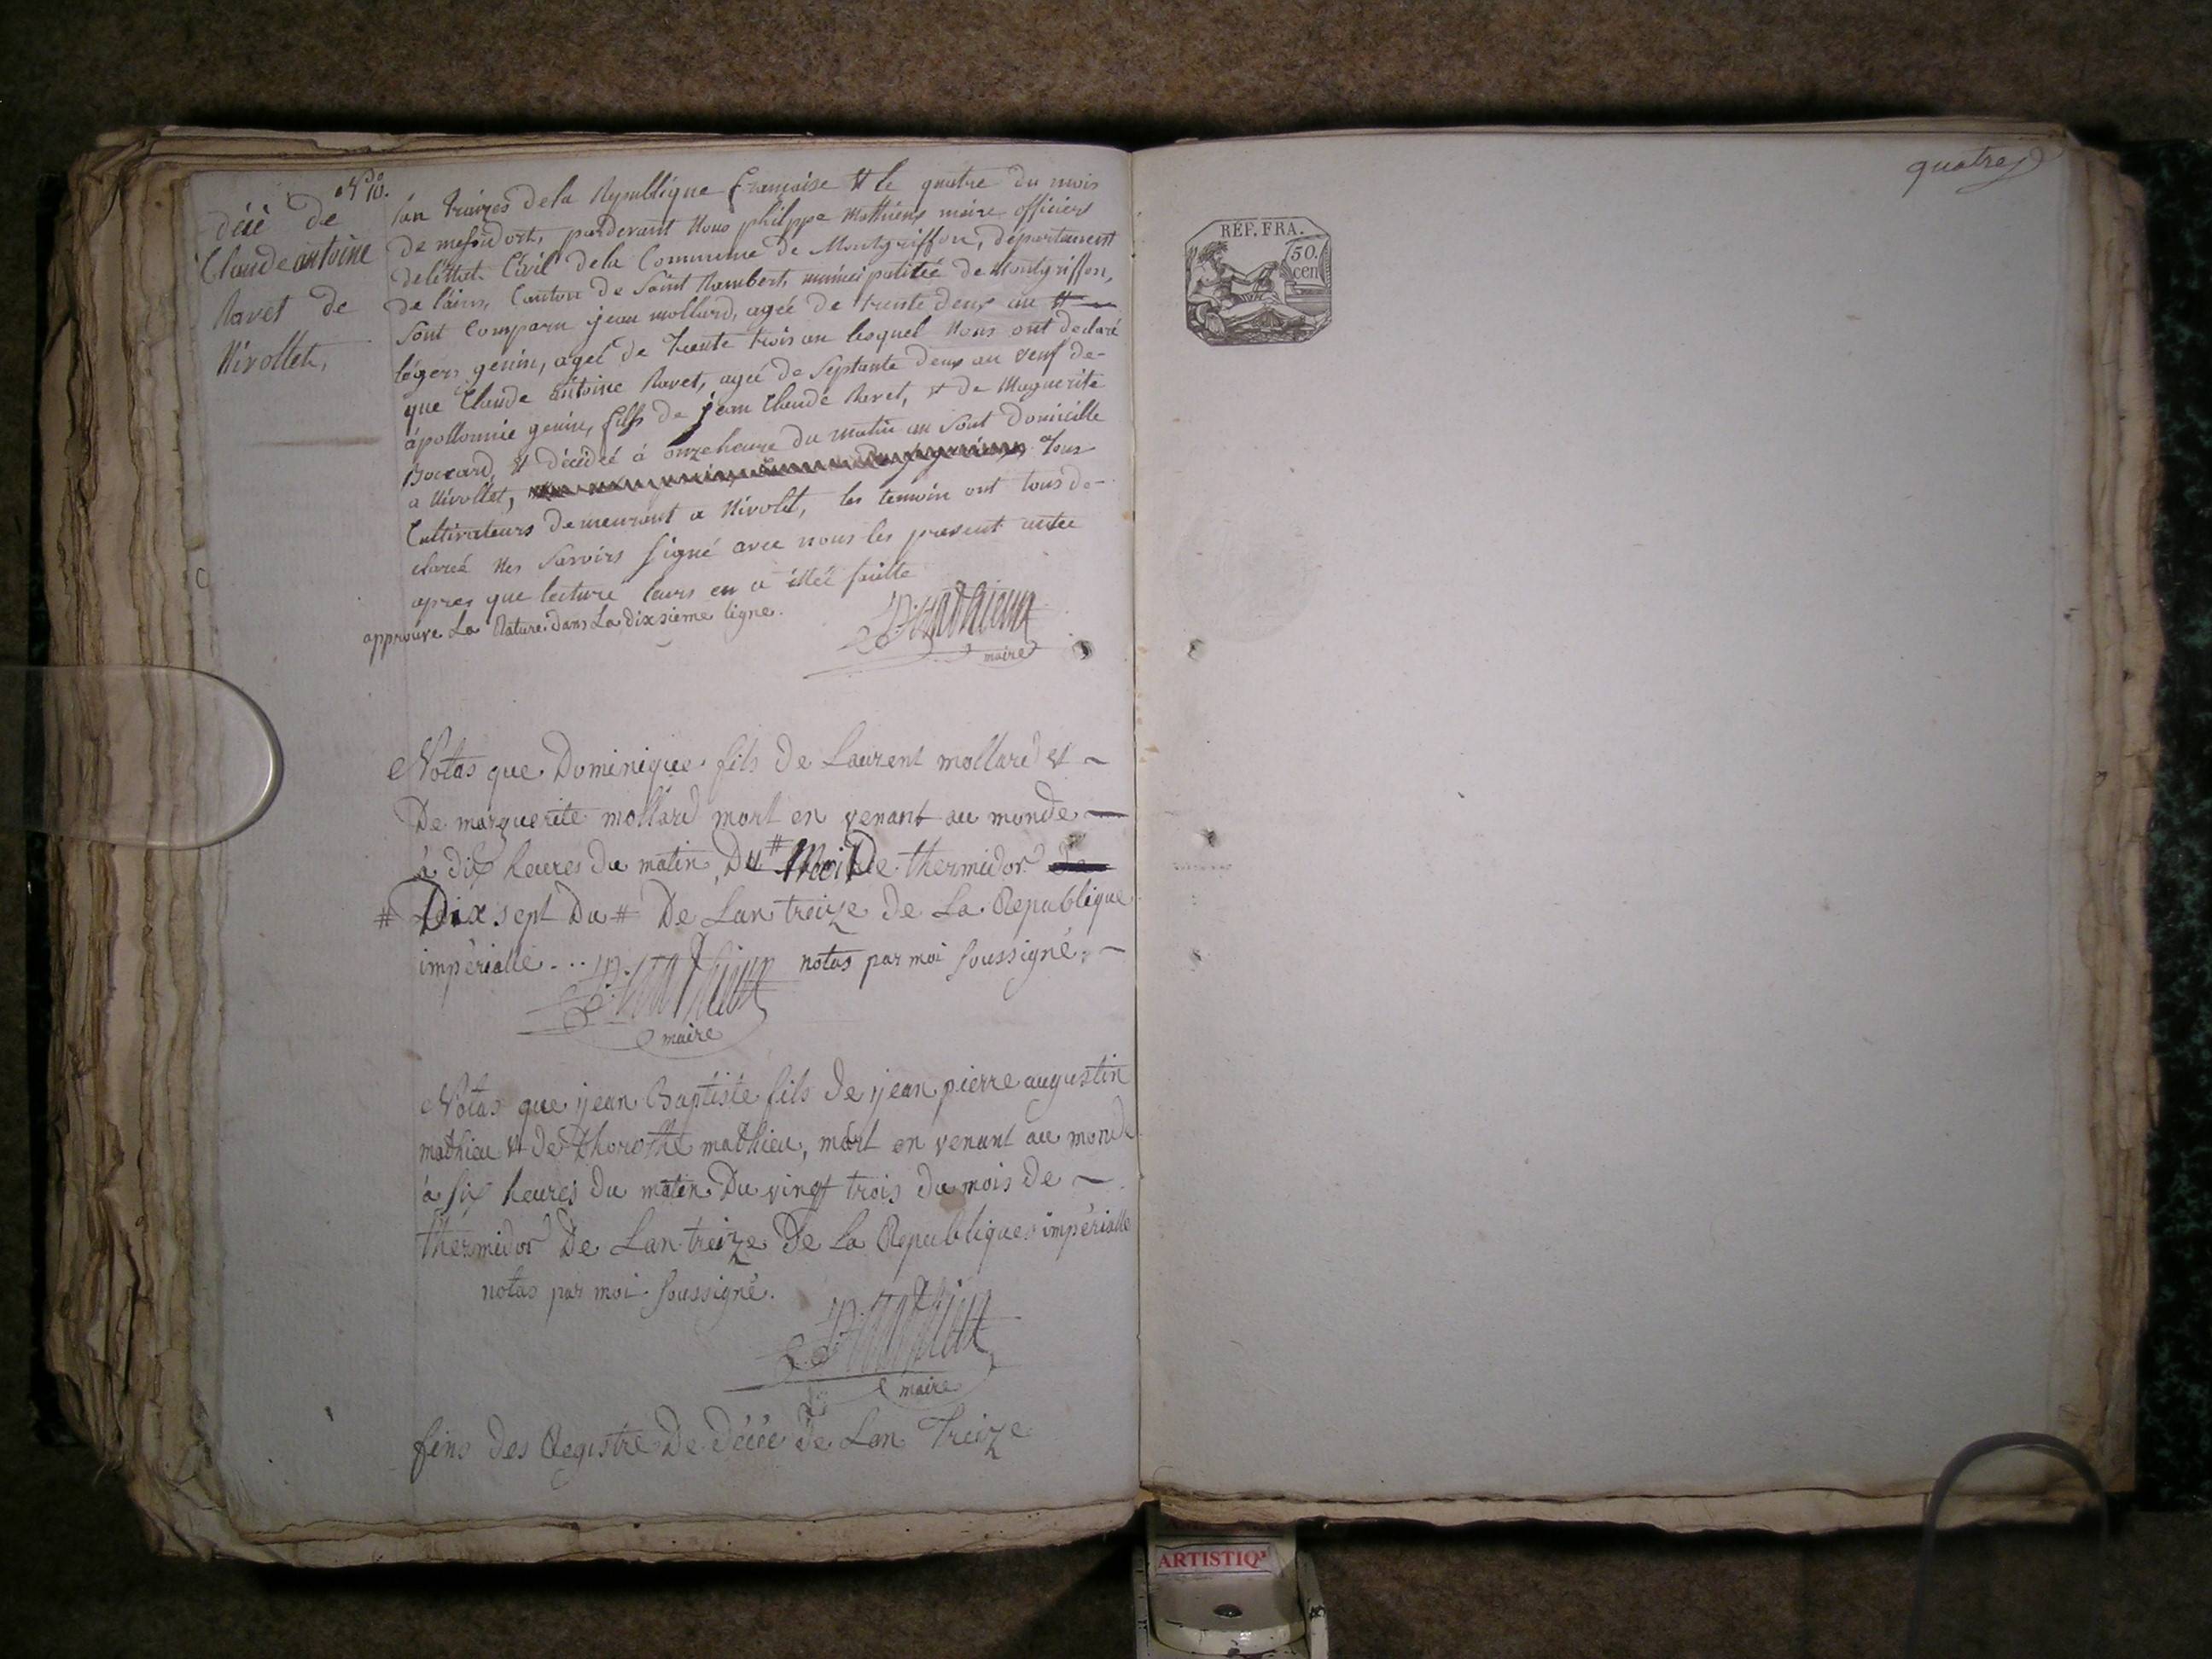 N° 10.
décé de
Claude antoine
Ravet de
Nivollet,
lan traizes de la Republique francaise et le quatre du mois
de mesidort, pardevant Nous philippe Mathieux maire officiers
de létat Civil de la Commune de Montgriffon, departement
de lains, Canton de Saint Rambert, municipalitée de Montgriffon,
Sont Comparu jean mollard, agée de trente deux an et
légers genin, ageé de trente trois an lesquel Nous ont declaré
que Claude antoine Ravet, ageé de Septante deux an veuf de-
apollonnie genin, fils de jean Claude Ravet, et de Maguerite
Bocxard, et décédeé à onze heure du matin au Sont Domicille
a Nivollet, tous
Cultivateurs demeurant a Nivolet, les temoin ont tous de-
claréé Nes Savoirs signé avec nous les present actee
apres que lecture leurs en a étéé faitte
approuve La Rature dans La dixsieme ligne.
P. Mathieux
maire
Notas que Dominique fils de Laurent mollard et
De marguerite mollard mort en venant au monde
à dix heures du matin, Du # Moi De thermidor
# Dix sept Du # De Lan treize de La Republique
impérialle... notas par moi soussigné.
P. Mathieux
maire
Notas que jean Baptiste fils de jean pierre augustin
mathieu et de Dhorothé mathieu, mort en venant au monde
à six heures du matin Du vingt trois du mois de
thermidor De Lan treize De La Republiques impérialle
notas par moi soussigné.
P. Mathieux
maire
fins des Registre De Décée de Lan Treize
quatre
RÉP. FRA.
50.
cen
ARTISTIQ